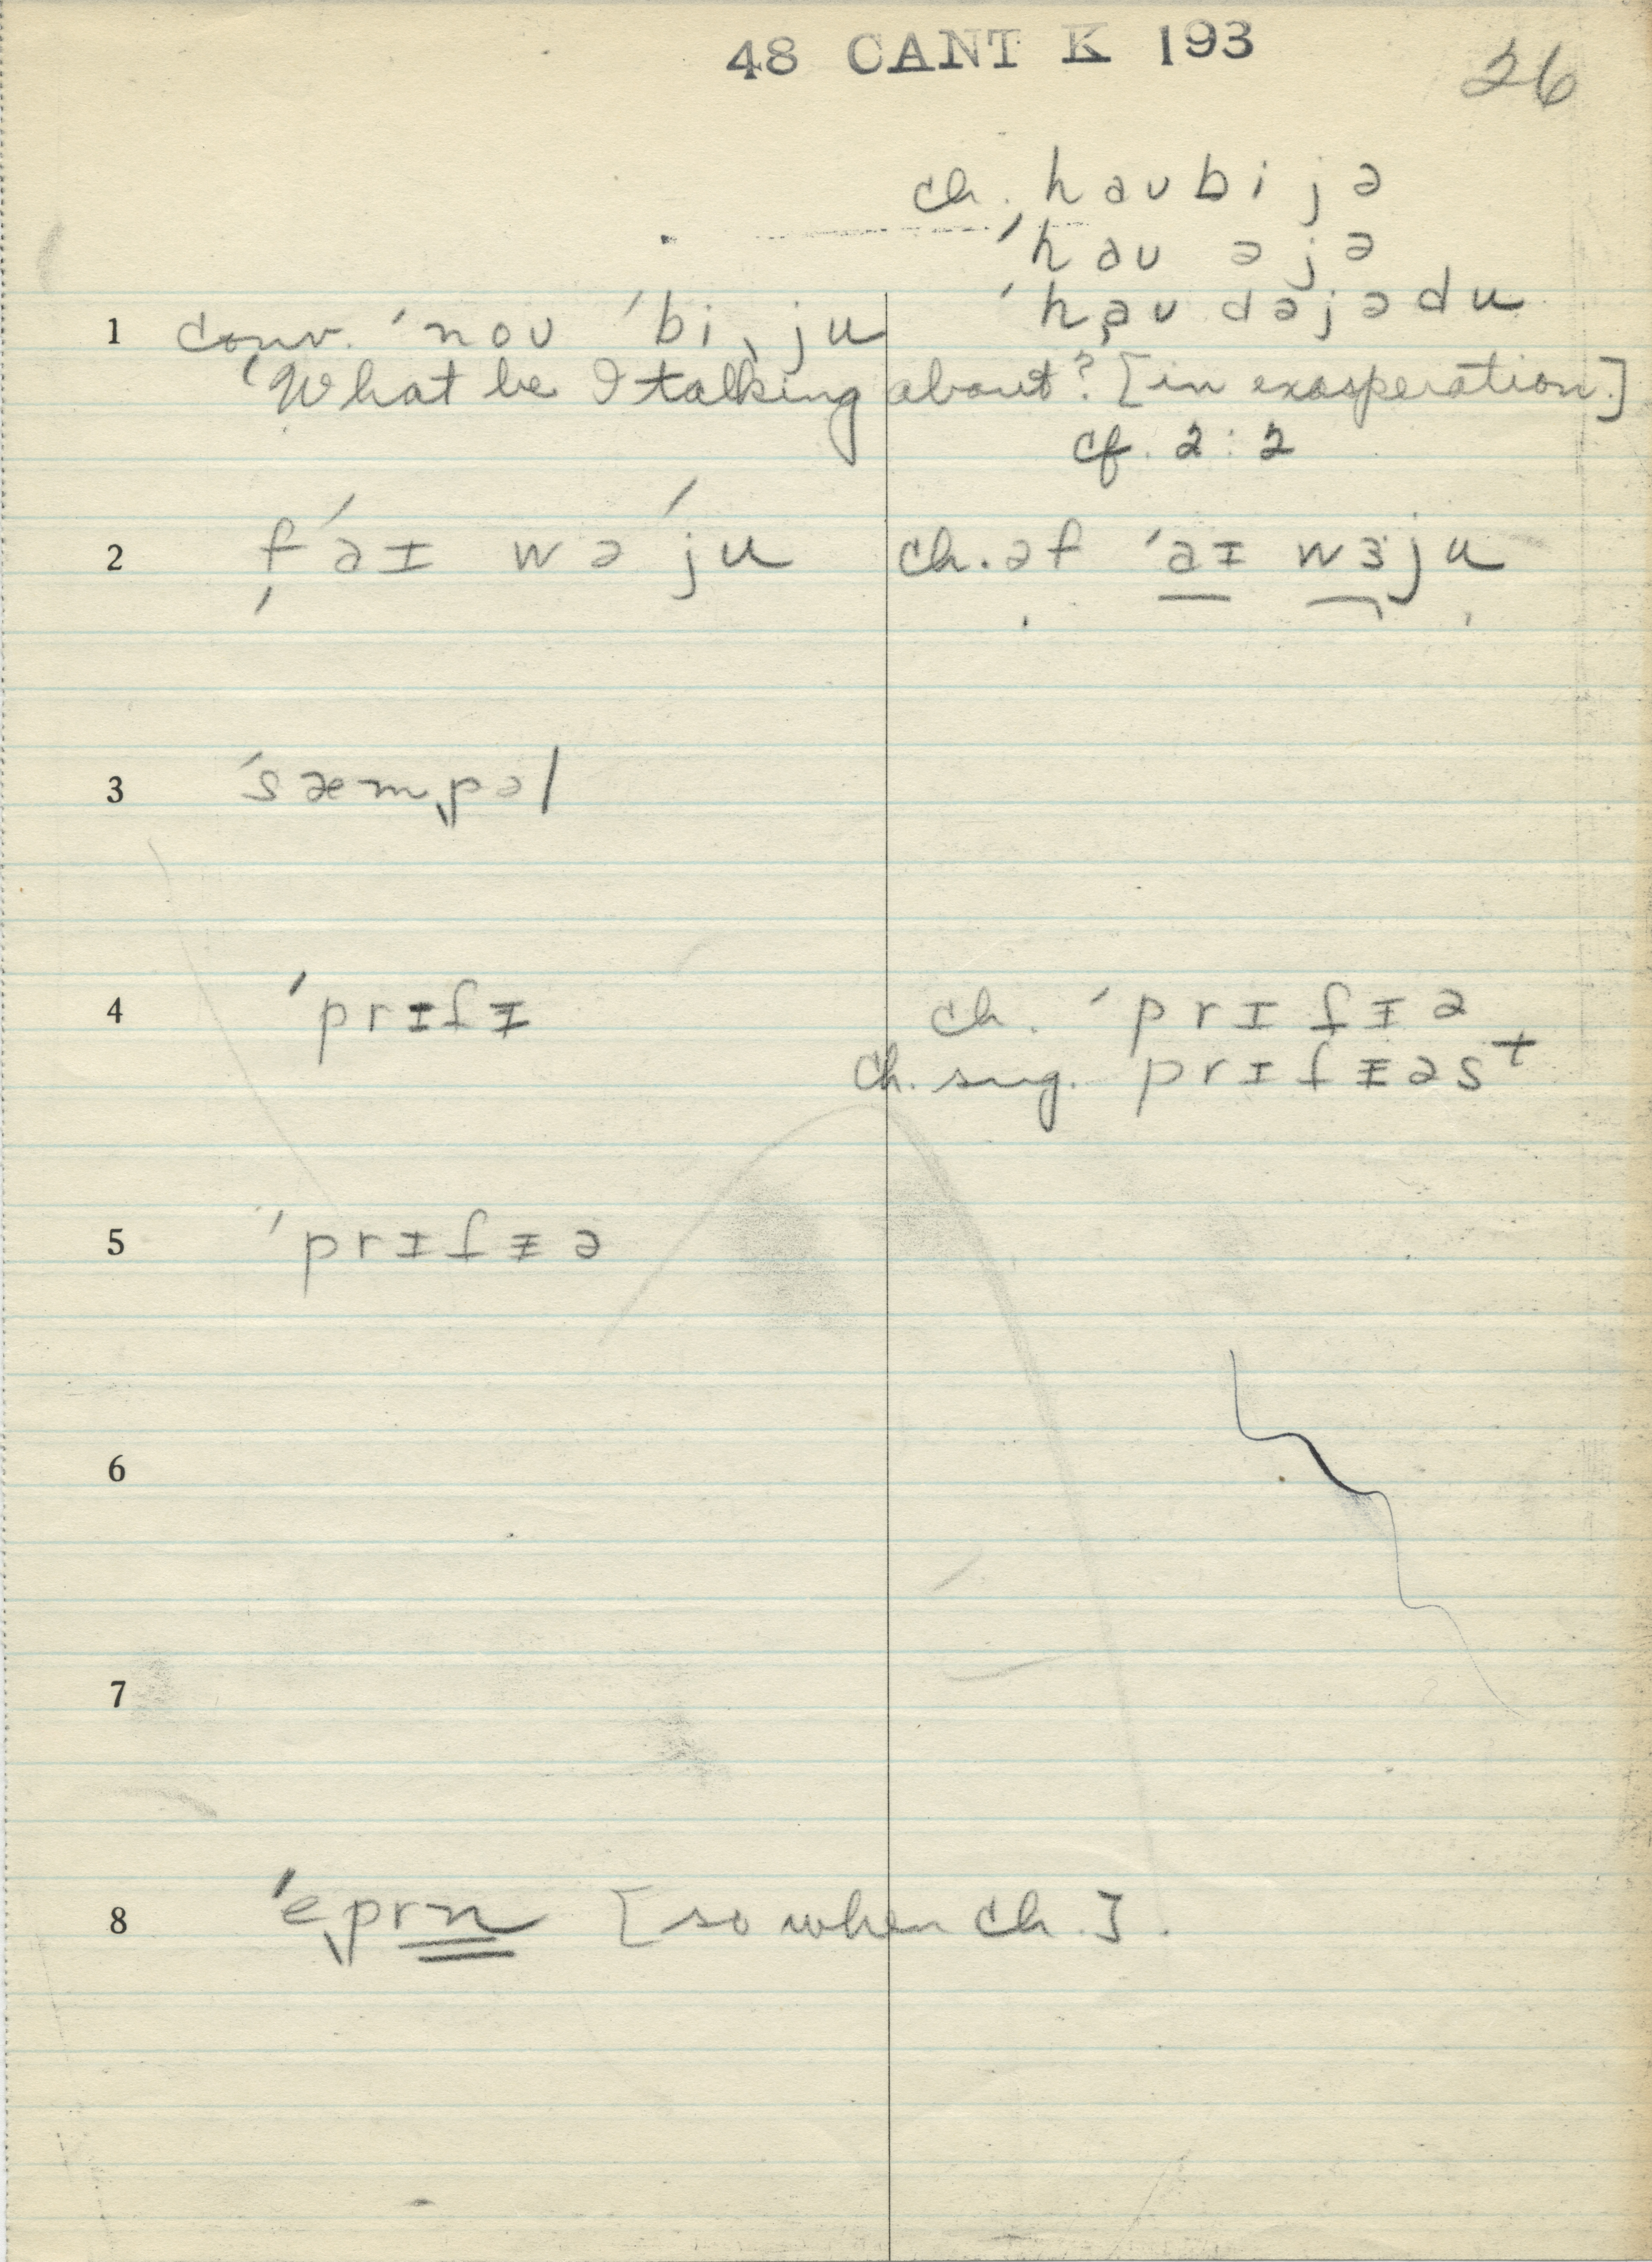 48 CANT K 193
26
ch. haʊbijə
ˈhaʊ əjə
1 conv. ˈnoʊ ˈbiˌju ˈhaʊ dəjədu
What be I talking about? [in exasperation.]
cf. 2:2
2 f ˈaɪ wə ˈju ch. əf ˈaɪ wɜju
3 ˈsæmpəl
4 ˈprɪfɪ ch. ˈprɪfɪə
ch. sug. prɪfᵻəst
5 ˈprɪfᵻə
6
7
8 ˈeprn [so when ch.].